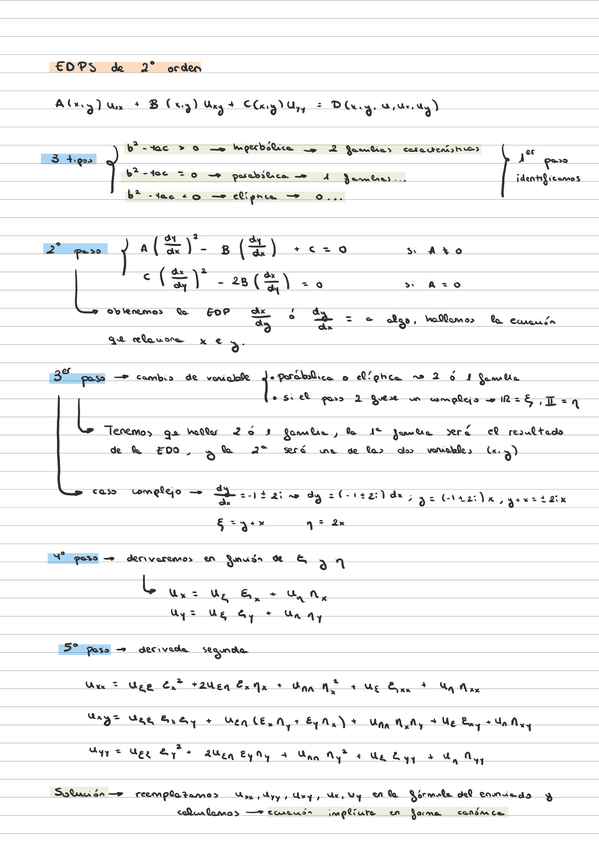 EDPS de 2º orden
A(x,y) uxx + B(x,y) uxy + C(x,y) uyy = D(x,y,u,ux,uy)
3 tipos { b² - 4ac > 0 → hiperbólica → 2 familias características } 1er paso identificamos
b² - 4ac = 0 → parabólica → 1 familias...
b² - 4ac < 0 → elíptica → 0...
2º paso { A (dy/dx)² - B (dy/dx) + C = 0 si A ≠ 0
C (dx/dy)² - 2B (dx/dy) = 0 si A = 0
↳ obtenemos la EDP dx/dy ó dy/dx = a algo, hallamos la ecuación
que relaciona x e y.
3er paso → cambio de variable { • parábolica o elíptica ~> 2 ó 1 familia
• si el paso 2 fuese un complejo → IR = ξ, II = η
↳ Tenemos que hallar 2 ó 1 familia, la 1ª familia será el resultado
de la EDO, y la 2ª será una de las dos variables (x,y)
↳ caso complejo → dy/dx = -1 ± 2i ~> dy = (-1 ± 2i) dx ; y = (-1 ± 2i) x , y + x = ± 2ix
ξ = y + x η = 2x
4º paso → derivaremos en función de ξ y η
↳ ux = uξ ξx + uη ηx
uy = uξ ξy + uη ηy
5º paso → derivada segunda
uxx = uξξ ξx² + 2uξη ξx ηx + uηη ηx² + uξ ξxx + uη ηxx
uxy = uξξ ξx ξy + uξη (ξx ηy + ξy ηx) + uηη ηx ηy + uξ ξxy + uη ηxy
uyy = uξξ ξy² + 2uξη ξy ηy + uηη ηy² + uξ ξyy + uη ηyy
Solución → reemplazamos uxx, uyy, uxy, ux, uy en la fórmula del enunciado y
calculamos → ecuación implícita en forma canónica